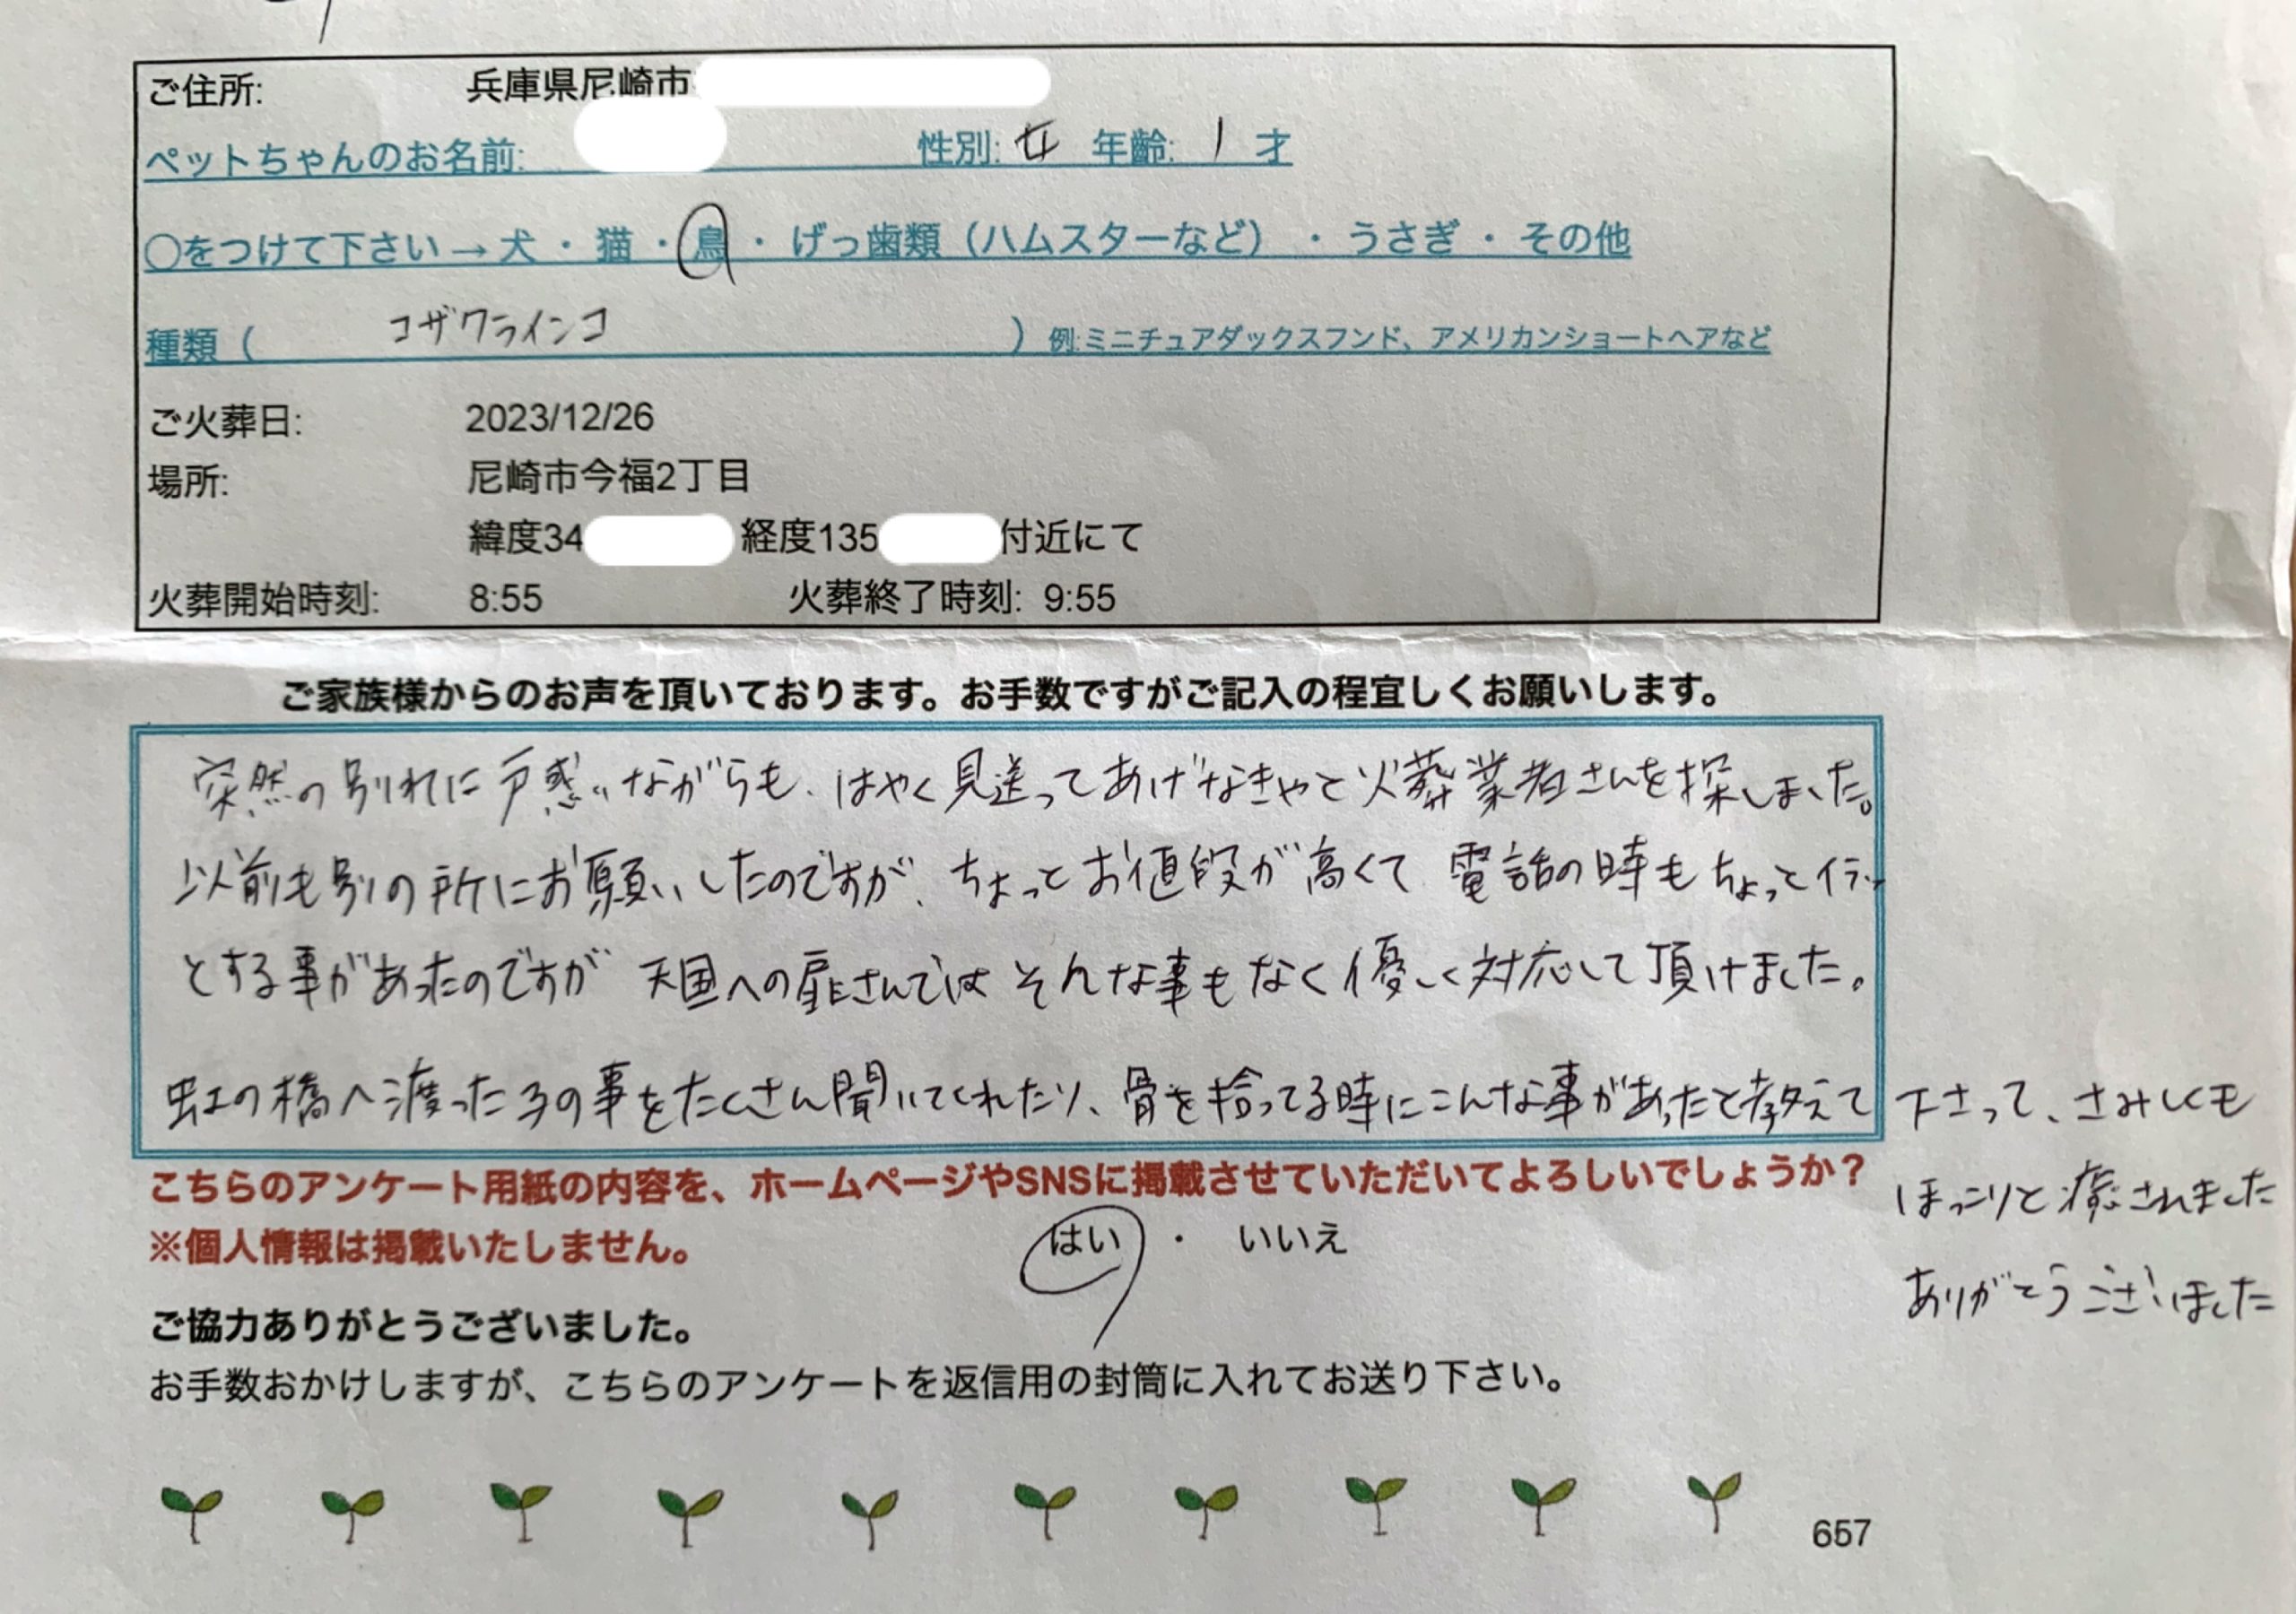 ご住所: 兵庫県尼崎市
ペットちゃんのお名前: 性別: 女 年齢: 1 才
○をつけて下さい→犬・猫・鳥・げっ歯類（ハムスターなど）・うさぎ・その他
種類（ コザクラインコ ）例:ミニチュアダックスフンド、アメリカンショートヘアなど
ご火葬日: 2023/12/26
場所: 尼崎市今福2丁目
緯度34 経度135 付近にて
火葬開始時刻: 8:55 火葬終了時刻: 9:55
ご家族様からのお声を頂いております。お手数ですがご記入の程宜しくお願いします。
突然の別れに戸惑いながらも、はやく見送ってあげなきゃと火葬業者さんを探しました。
以前も別の所にお願いしたのですが、ちょっとお値段が高くて 電話の時もちょっとイラッ
とする事があったのですが 天国への扉さんでは そんな事もなく優しく対応して頂けました。
虹の橋へ渡った子の事をたくさん聞いてくれたり、骨を拾ってる時にこんな事があったと教えて 下さって、さみしくも
ほっこりと癒されました
ありがとうございました
こちらのアンケート用紙の内容を、ホームページやSNSに掲載させていただいてよろしいでしょうか？
※個人情報は掲載いたしません。 はい ・ いいえ
ご協力ありがとうございました。
お手数おかけしますが、こちらのアンケートを返信用の封筒に入れてお送り下さい。
657